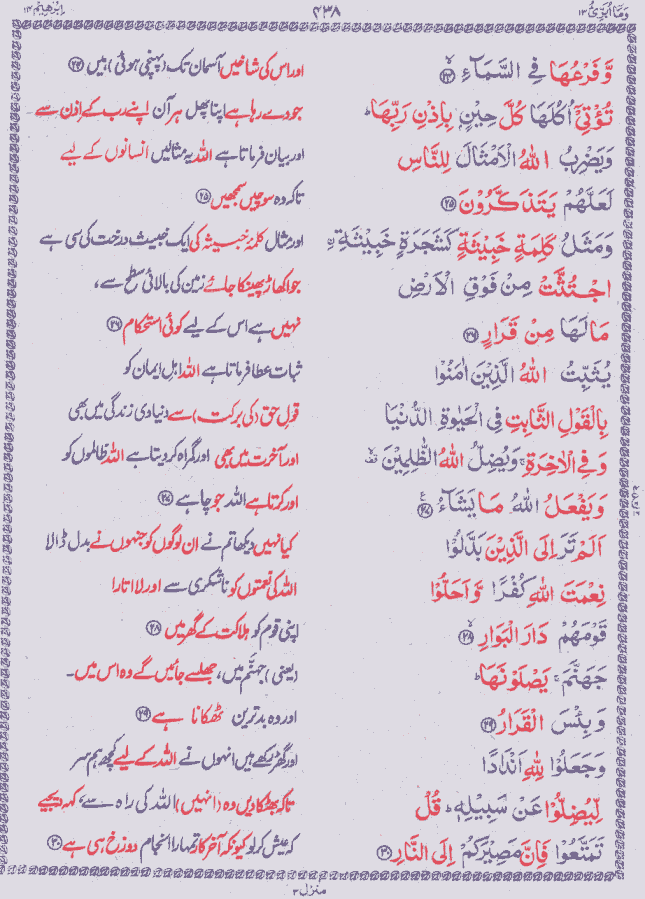 وَمَآ اُبَرِّئُ ۱۳
۴۳۸
اِبْرٰهِيْم ۱۴
وَّفَرْعُهَا فِي السَّمَآءِ ۙ ۲۴
اور اس کی شاخیں آسمان تک (پہنچی ہوئی) ہیں ۲۴
تُؤْتِيْٓ اُكُلَهَا كُلَّ حِيْنٍۭ بِاِذْنِ رَبِّهَا ؕ
جو دے رہا ہے اپنا پھل ہر آن اپنے رب کے اِذن سے
وَيَضْرِبُ اللّٰهُ الْاَمْثَالَ لِلنَّاسِ
اور بیان فرماتا ہے اللہ یہ مثالیں انسانوں کے لیے
لَعَلَّهُمْ يَتَذَكَّرُوْنَ ۲۵
تاکہ وہ سوچیں سمجھیں ۲۵
وَمَثَلُ كَلِمَةٍ خَبِيْثَةٍ كَشَجَرَةٍ خَبِيْثَةِ ۨ
اور مثال کلمۂ خبیثہ کی ایک خبیث درخت کی سی ہے
اجْتُثَّتْ مِنْ فَوْقِ الْاَرْضِ
جو اکھاڑ پھینکا جائے زمین کی بالائی سطح سے،
مَا لَهَا مِنْ قَرَارٍ ۲۶
نہیں ہے اس کے لیے کوئی استحکام ۲۶
يُثَبِّتُ اللّٰهُ الَّذِيْنَ اٰمَنُوْا
ثبات عطا فرماتا ہے اللہ اہلِ ایمان کو
بِالْقَوْلِ الثَّابِتِ فِي الْحَيٰوةِ الدُّنْيَا
قولِ حق (کی برکت) سے دنیاوی زندگی میں بھی
وَفِي الْاٰخِرَةِ ۚ وَيُضِلُّ اللّٰهُ الظّٰلِمِيْنَ
اور آخرت میں بھی اور گمراہ کر دیتا ہے اللہ ظالموں کو
وَيَفْعَلُ اللّٰهُ مَا يَشَآءُ ۲۷
اور کرتا ہے اللہ جو چاہے ۲۷
اَلَمْ تَرَ اِلَى الَّذِيْنَ بَدَّلُوْا
کیا نہیں دیکھا تم نے ان لوگوں کو جنہوں نے بدل ڈالا
نِعْمَتَ اللّٰهِ كُفْرًا وَّاَحَلُّوْا
اللہ کی نعمتوں کو ناشکری سے اور لا اتارا
قَوْمَهُمْ دَارَ الْبَوَارِ ۙ ۲۸
اپنی قوم کو ہلاکت کے گھر میں ۲۸
جَهَنَّمَ ۚ يَصْلَوْنَهَا ؕ
(یعنی) جہنّم میں، جھلسے جائیں گے وہ اس میں۔
وَبِئْسَ الْقَرَارُ ۲۹
اور وہ بدترین ٹھکانا ہے ۲۹
وَجَعَلُوْا لِلّٰهِ اَنْدَادًا
اور گھڑ رکھے ہیں انہوں نے اللہ کے لیے کچھ ہم سر
لِّيُضِلُّوْا عَنْ سَبِيْلِهٖ ؕ قُلْ
تاکہ بھٹکا دیں وہ (انہیں) اللہ کی راہ سے، کہہ دیجیے
تَمَتَّعُوْا فَاِنَّ مَصِيْرَكُمْ اِلَى النَّارِ ۳۰
کہ عیش کر لو کیونکہ آخر کار تمہارا انجام دوزخ ہی ہے ۳۰
منزل ۳